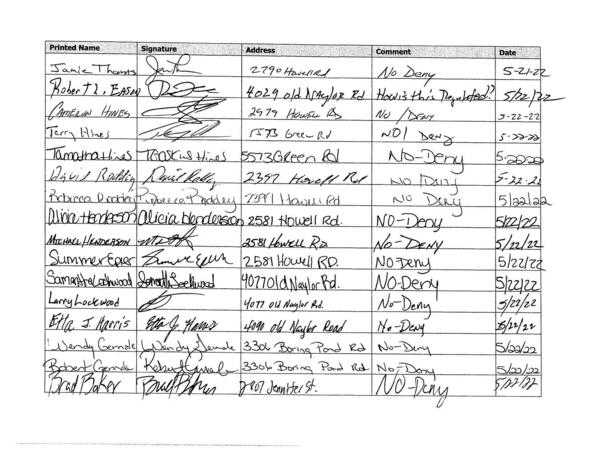 Printed Name Signature Address Comment Date
Jamie Thomas 2790 Howell Rd No Deny 5-21-22
Robert L. Eason 4029 old Naylor Rd How is this Regulated? 5/22/22
Cameron Hines 2979 Howell Rd No /Deny 5-22-22
Terry Hines 5573 Green Rd NO! Deny 5-22-22
Tamatha Hines Hines 5573 Green Rd No-Deny
David 2397 Howell Rd No /Deny 5-22-22
Rebecca Rebecca Howell Rd No Deny 5/22/22
Alicia Henderson Alicia Henderson 2581 Howell Rd. NO-Deny 5/22/22
Michael Henderson 2581 Howell Rd NO-Deny 5/22/22
Summer Epier Summer 2581 Howell RD. NO Deny 5/22/22
Samantha Lockwood Samantha Lockwood 4077 Old Naylor Rd. NO-Deny 5/22/22
Larry Lockwood 4077 old Naylor Rd. No-Deny 5/22/22
Etta J. Harris Etta J. Harris 4090 old Naylor Road No-Deny 5/22/22
Wendy Wendy 3306 Boring Pond Rd No-Deny 5/22/22
Robert Robert 3306 Boring Pond Rd No-Deny 5/22/22
Brad Baker Brad Baker 2807 Jennifer St. NO-Deny 5/22/22